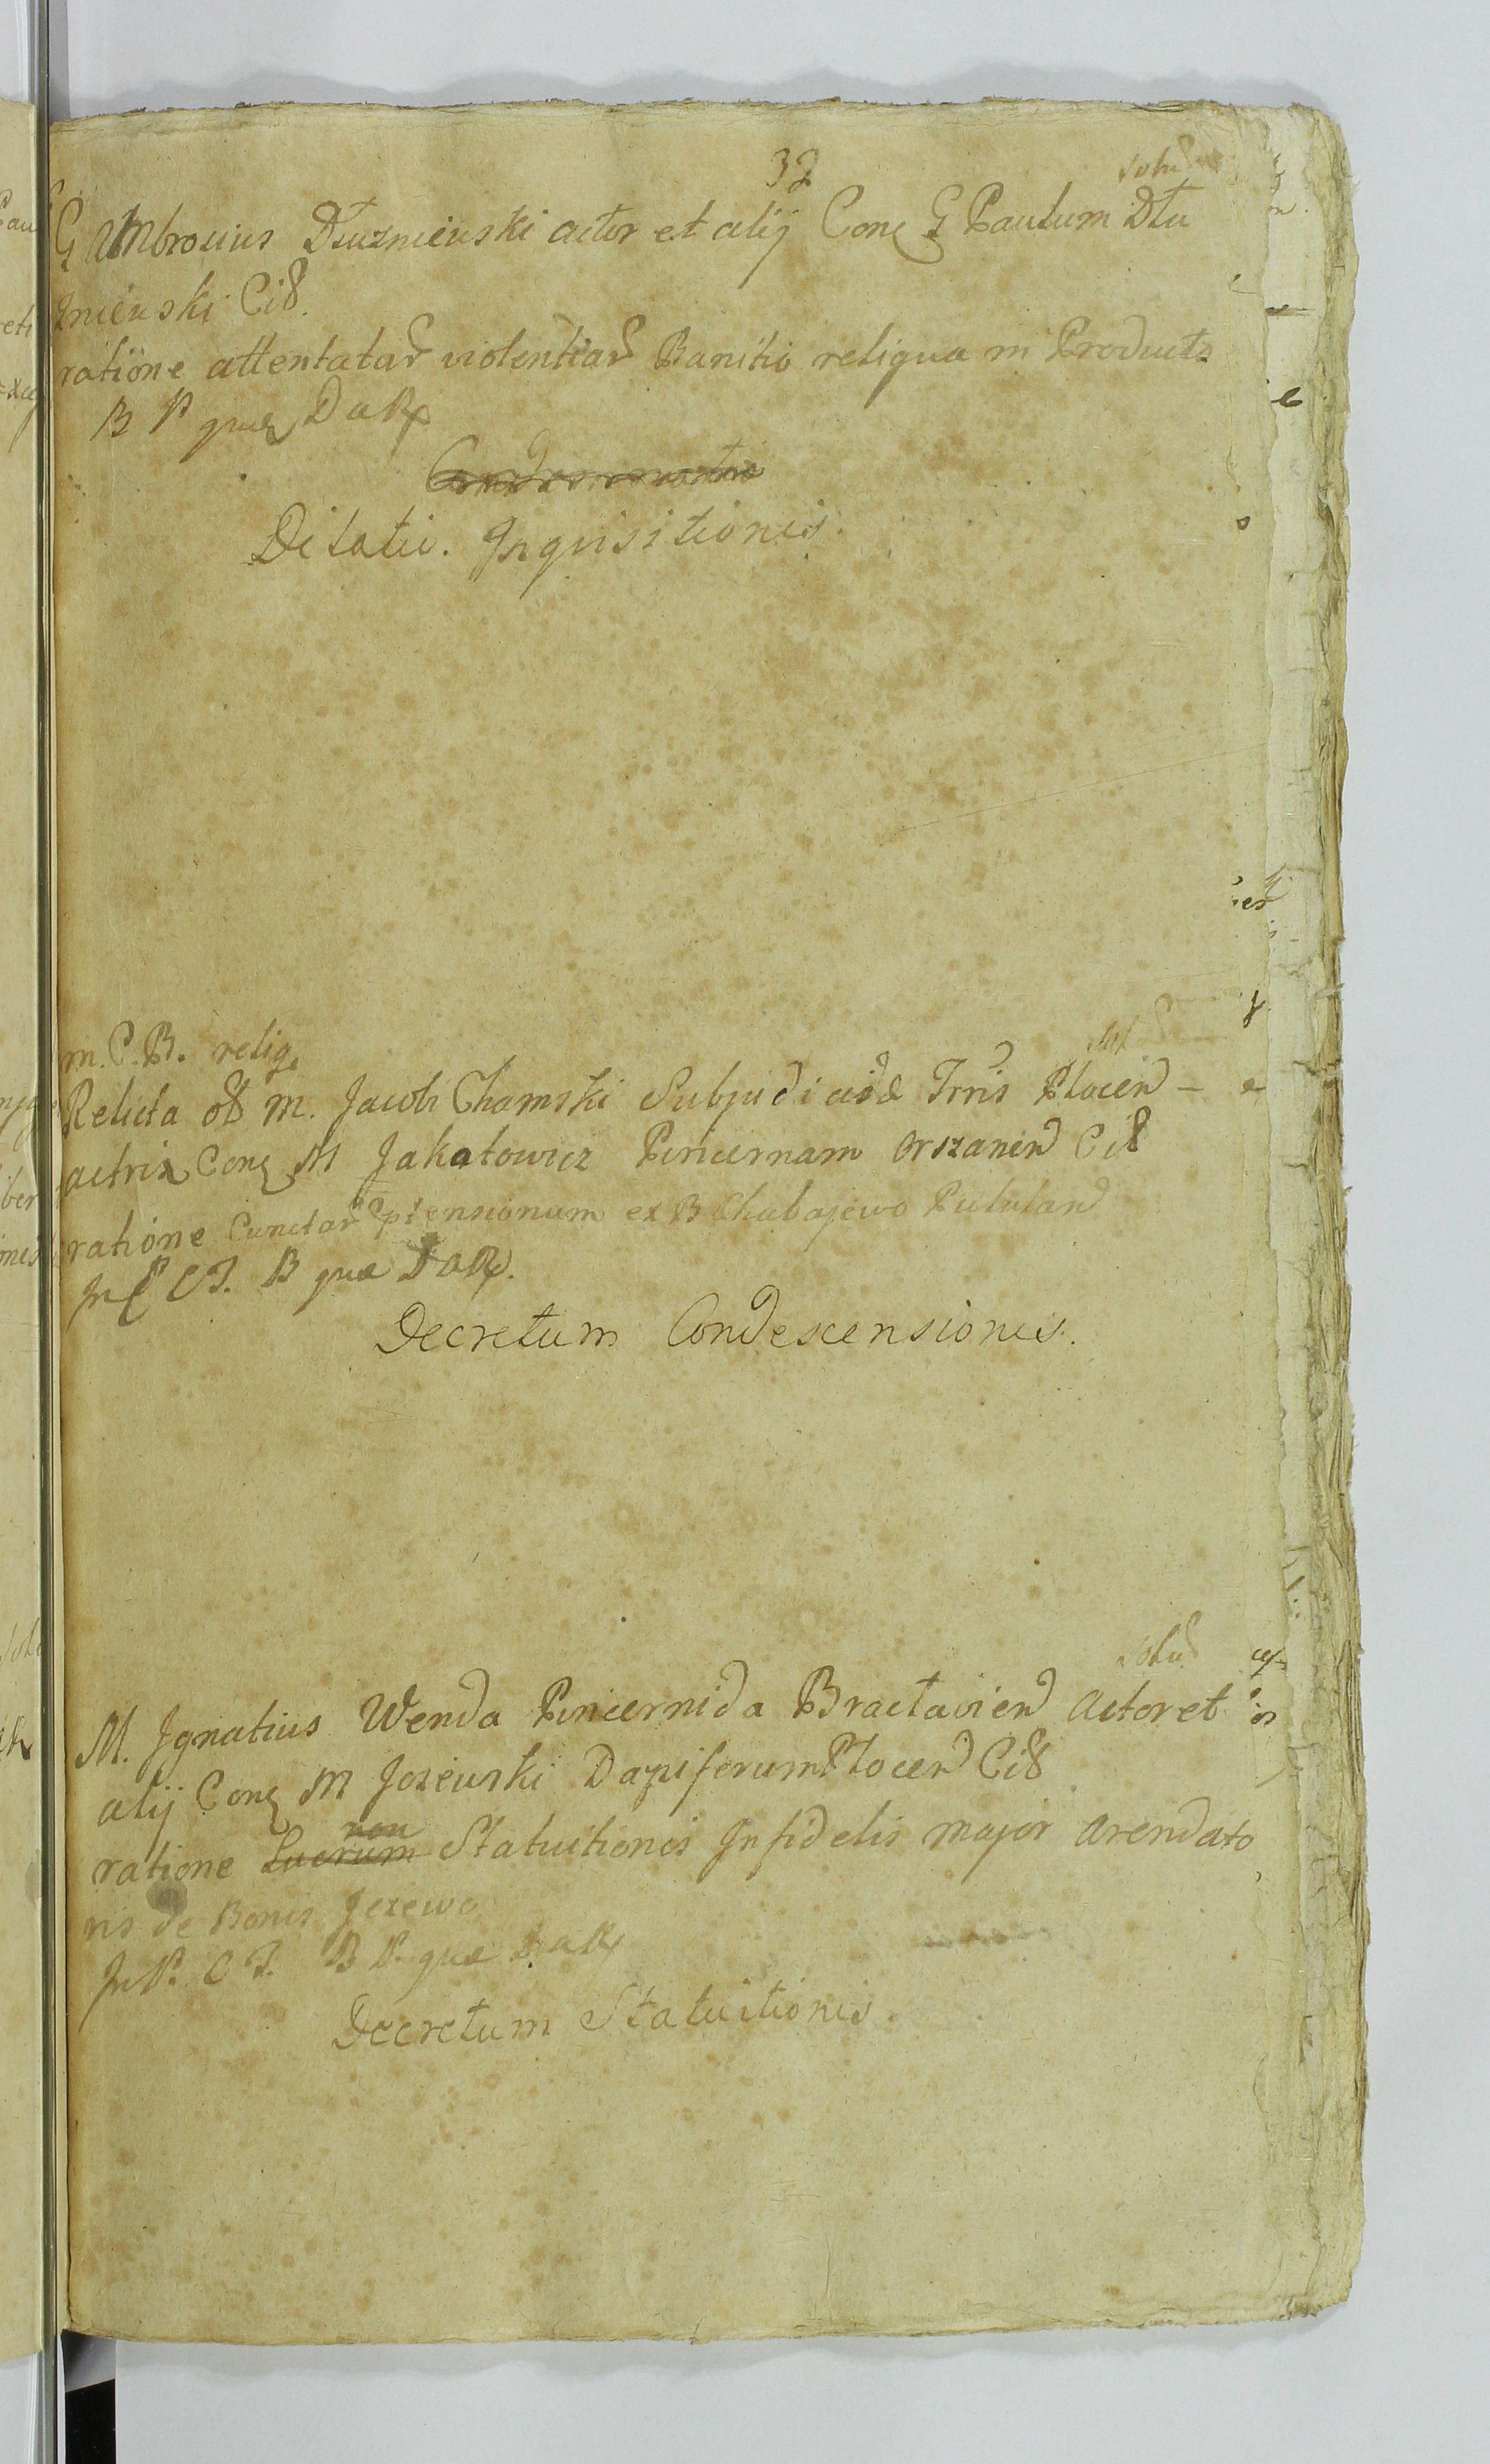 32
solud
G Ambrosius Dłuzniewski actor et alij Conq G Paulum Dłu
zniewski Cit
ratione attentatar violentiar Banitio reliqua in Producto
B P quæ DaRx
Condemnatio
Dilatio. Inquisitionis.
m. C. B. reliq
Relicta ol M. Jacob Chamski Subjudicis Trris Plocen -
actrix Conq M Jakatowicz Pincernam Orszanen Cit
ratione Cunctar Ptensionum ex B Chabajewo Pululan
In P CT. B quæ DaRx.
Decretum Condescensionis.
solud
M. Ignatius Wenda Pincernida Bractavien Actor et
alij Conq M Jozewski Dapiferum Plocen Cit
non
ratione Lucrum Statuitionis Infidelis major Arendato
ris de Bonis Jezewo
In P. C T. B P. quæ DaRx
Decretum Statuitionis.